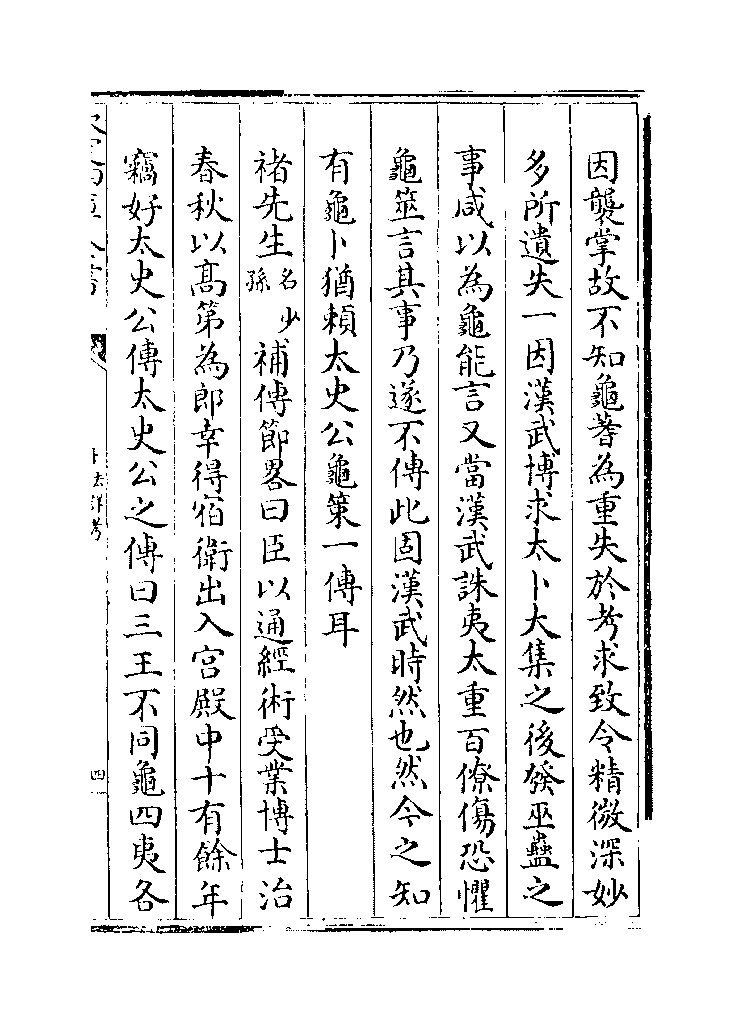 因襲掌故不知龜蓍為重失於考求致令精微深妙
多所遺失一因漢武博求太卜大集之後發巫蠱之
事咸以為龜能言又當漢武誅夷太重百僚傷恐懼
龜筮言其事乃遂不傳此固漢武時然也然今之知
有龜卜猶頼太史公龜策一傳耳
褚先生名少孫補傳節畧曰臣以通經術受業博士治
春秋以髙第為郎幸得宿衛出入宫殿中十有餘年
竊好太史公傳太史公之傳曰三王不同龜四夷各
四